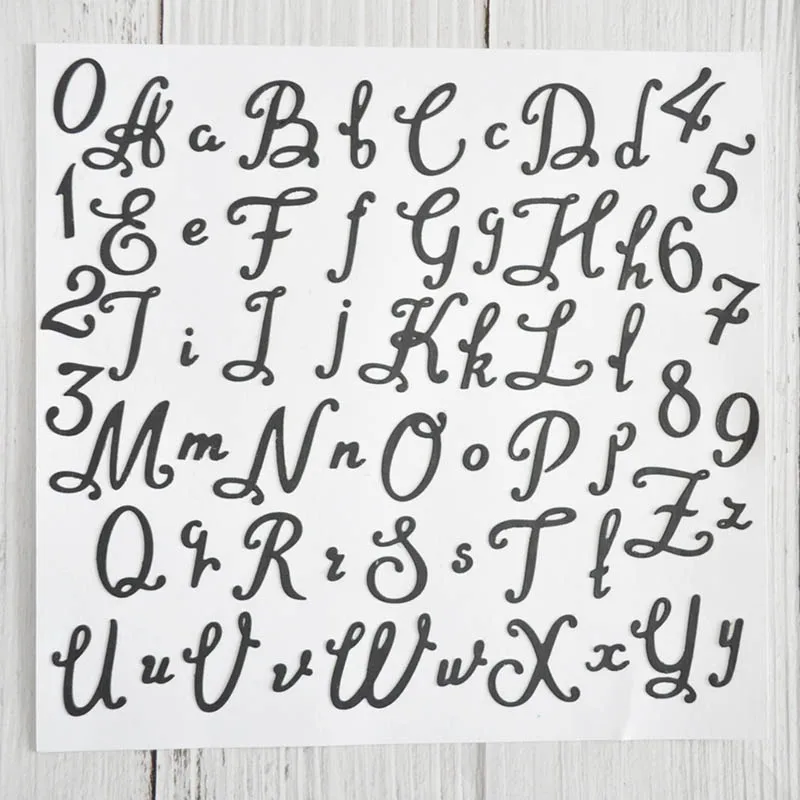 0 A a B b C c D d 4
1 E e F f G g H h 6 5
2 I i J j K k L l 7
3 M m N n O o P p 8 9
Q q R r S s T t Z z
U u V v W w X x Y y